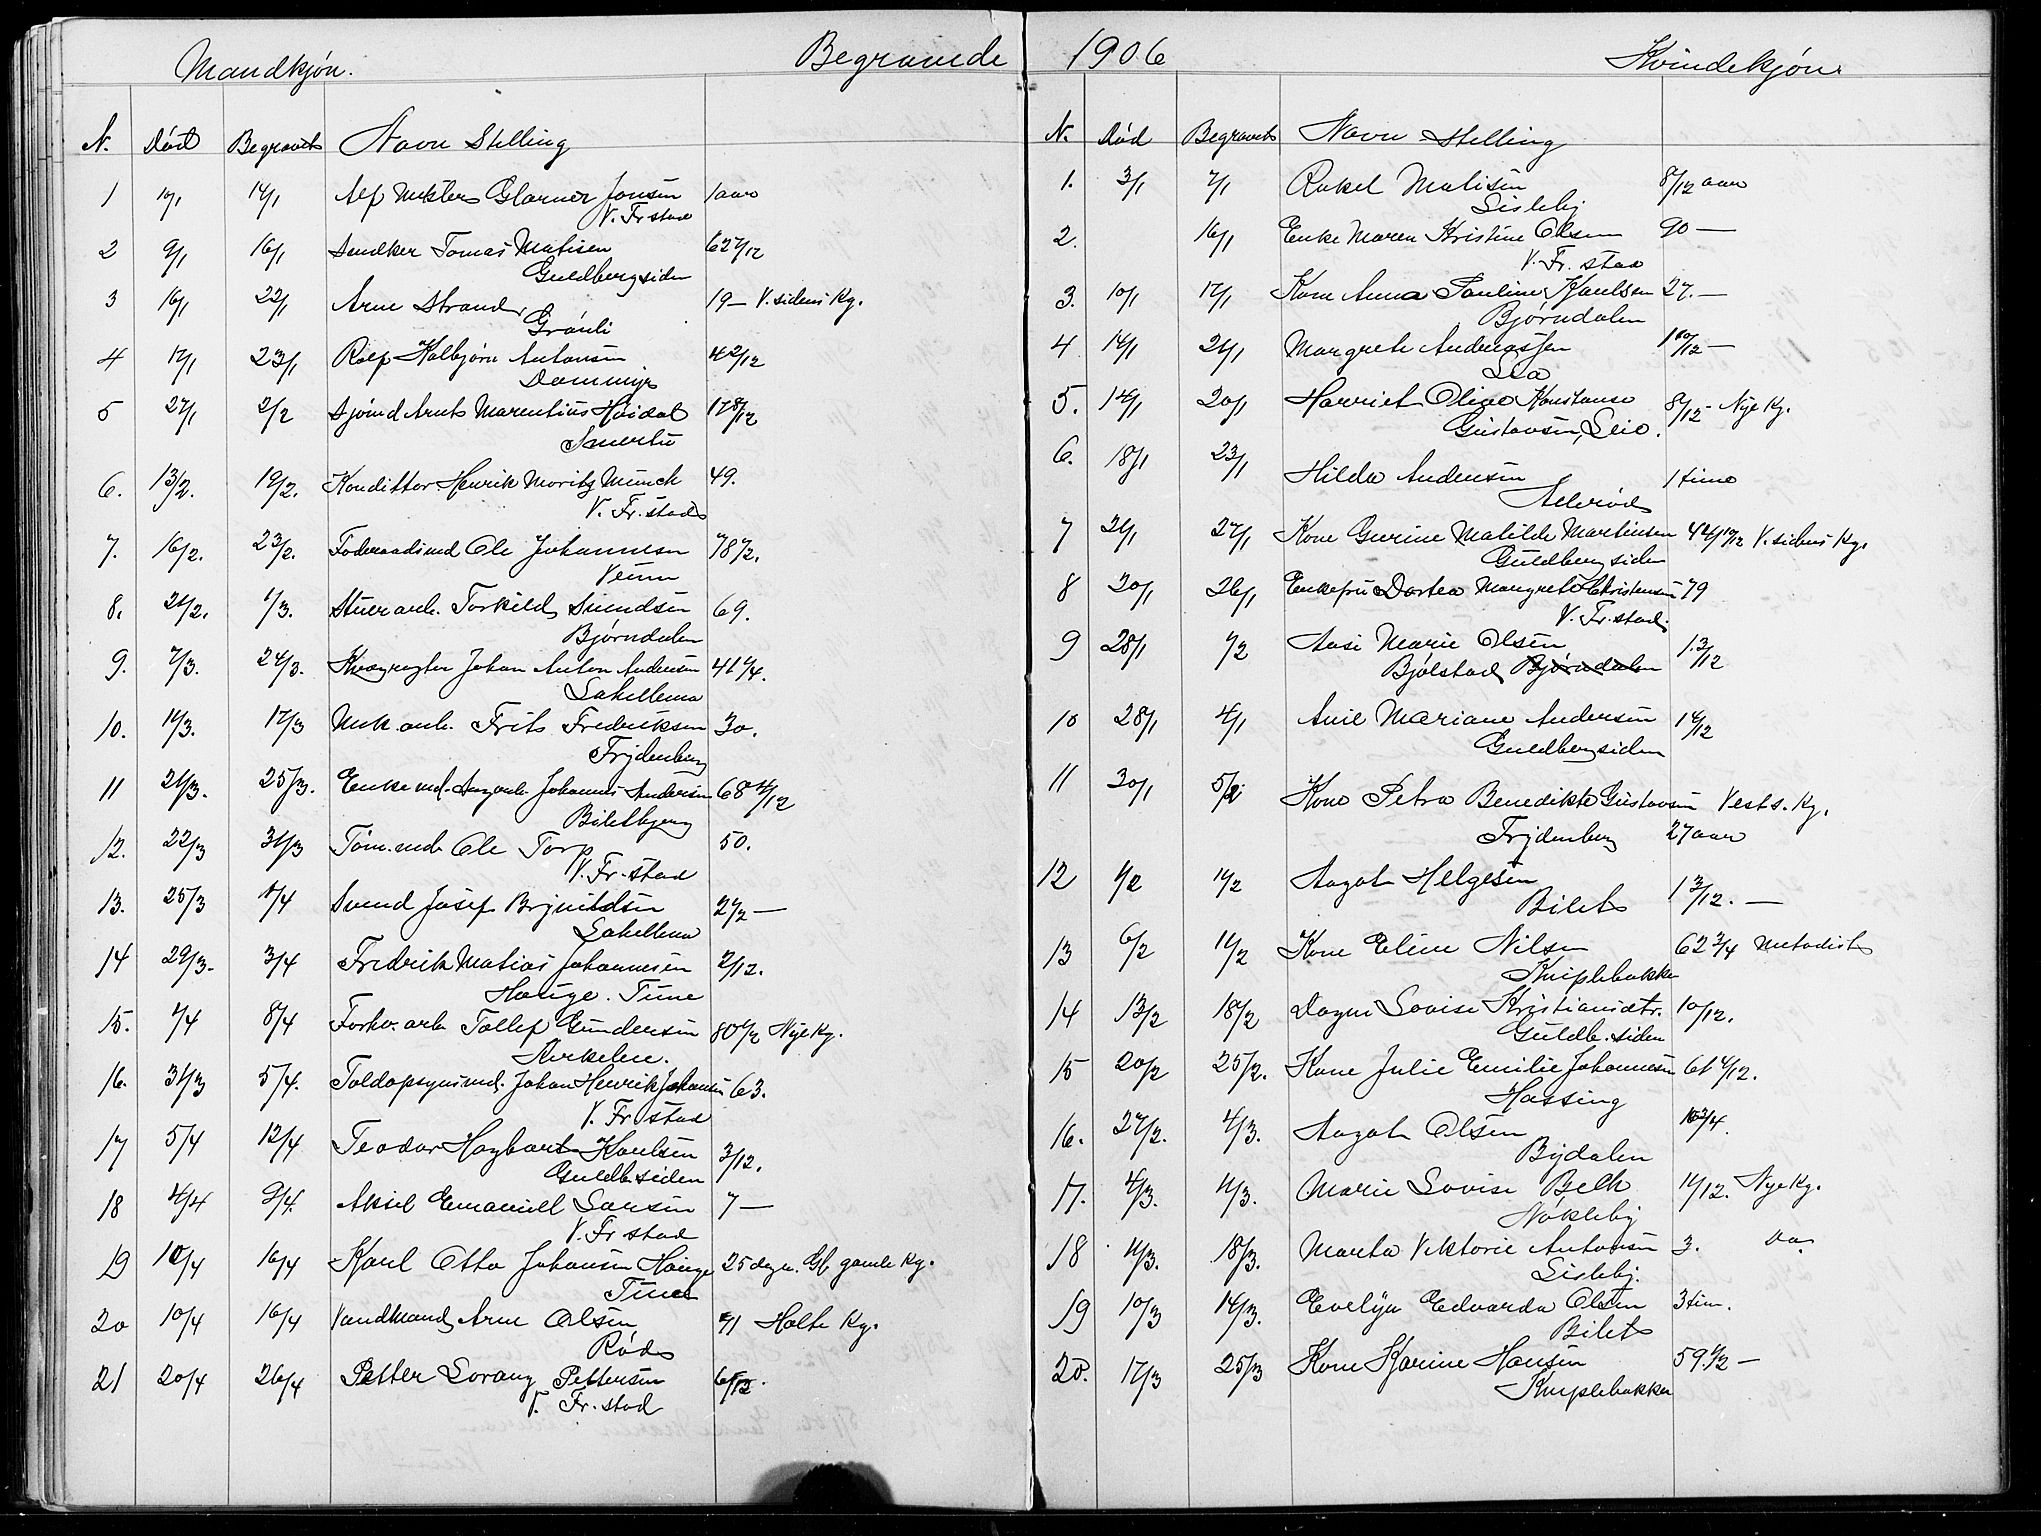 Mandkjøn. Begravede
N. Død Begravet Navn Stilling
1 14/1 Alf Glarner Jonsen 1 aar
V. Fr. stad
2 9/1 16/1 Smedker Tomas Matisen
Guldbergsiden
3 16/1 22/1 Arne Strand 19 — V. sidens Kg.
Grønli
4 17/1 23/1 Rolf Kolbjørn Antonsen 4 2/12
Dammyr
5 27/1 2/2 Marentius Høidal 17 8/12
Smertu
6. 13/2. 19/2. Konditter Henrik Moritz Munch 49.
V. Fr. stad
7. 16/2. 23/2. Foderaadsmd Ole Johannesen 78 1/2.
Veum
8. 1/3. Stuerarb. Torkild Svendsen 69.
Bjørndalen
9. 7/3. 24/3. Kvægrøgter Johan Anton Andersen 41 1/4.
Lahellemo
10. 11/3. 17/3 Mek. arb. Frits Fredriksen 30.
Frydenberg
11 21/3. 25/3. Enkemd. Johannes Andersen 68
Biletbjerg
12. 22/3 31/3 Tøm. md. Ole Torp 50.
V. Fr. stad
13. 25/3 1/4 Svend Josef Brynildsen 2 1/2 —
Lahellemo
14 29/3. 3/4 Fredrik Matias Johannesen 2/12.
Hauge. Tune
15. 1/4 8/4 Forhv. arb Tollef Gundersen 80 1/2 Nye Kg.
16. 31/3 5/4. Toldopsynsmd. Johan Henrik Johansen 63.
V. Fr stad
17 5/4 12/4 Teodor Hagbart Karlsen 3/12.
Guldb. siden
18 4/4 9/4. Aksel Emanuell Larsen 7 —
V. Fr stad
19 10/4 16/4 Karl Otto Johansen Hauge 25 dage. Gl. gamle Kg.
Tune
20 10/4 16/4 Vandmand Arne Olsen 91 Holte Kg.
Rød
21 20/4 26/4 Petter Sorang Pettersen 6/12.
V. Fr. stad
1906 Kvindekjøn.
N. Død Begravet Navn Stilling
1. 3/1 7/1 Rakel Matisen 8/12 aar
Lisleby
2. 16/1 Enke Maren Kristine Olsen 90 —
V. Fr. stad
3. 10/1 17/1 Kone Anna Pauline Karlsen 27. —
Bjørndalen
4 14/1 21/1 Margrete Andreassen 1 10/12 —
Leie
5. 14/1 20/1 Harriet Oline Konstanse 8/12 - Nye Kg.
Gustavsen, Leie.
6. 18/1 23/1 Hilda Andersen 1 time
7 21/1 27/1 Kone Gurine Matilde Martinsen V. sidens Kg.
Guldbergsiden
8 20/1 26/1 Enkefru Dortea Margrete Christensen 79
V. Fr. stad.
9 28/1 1/2 Aase Marie Olsen 1. 3/12
Bjølstad Bjørndalen
10 28/1 4/1 Mariane Andersen
Guldbergsiden
11 30/1 5/2 Kone Petra Benedikte Gustavsen Vests. Kg.
Frydenberg 27 aar
12 1/2 11/2 Aagot Helgesen 1 3/12. —
Bilet
13 6/2 11/2 Kone Eline Nilsen 62 3/4 Metodist
Kniplebakken
14 13/2 18/2 Dagny Lovise Kristiansdtr. 10/12.
Guldb. siden
15 20/2 25/2. Kone Julie Emilie Johannesen 61
Hassing
16. 27/2. 4/3. Aagot Olsen
Bydalen
17. 4/3. 11/3. Marie Lovise Belk 11/12. Nye Kg.
Nøkleby
18 11/3. 18/3. Marta Viktorie Antonsen 3. Do.
Lisleby.
19 10/3 14/3. Evelyn Edvarda Olsen 3 tim.
Bilet
20. 17/3 25/3 Kone Karine Hansen 59. 1/2 —
Kniplebakken